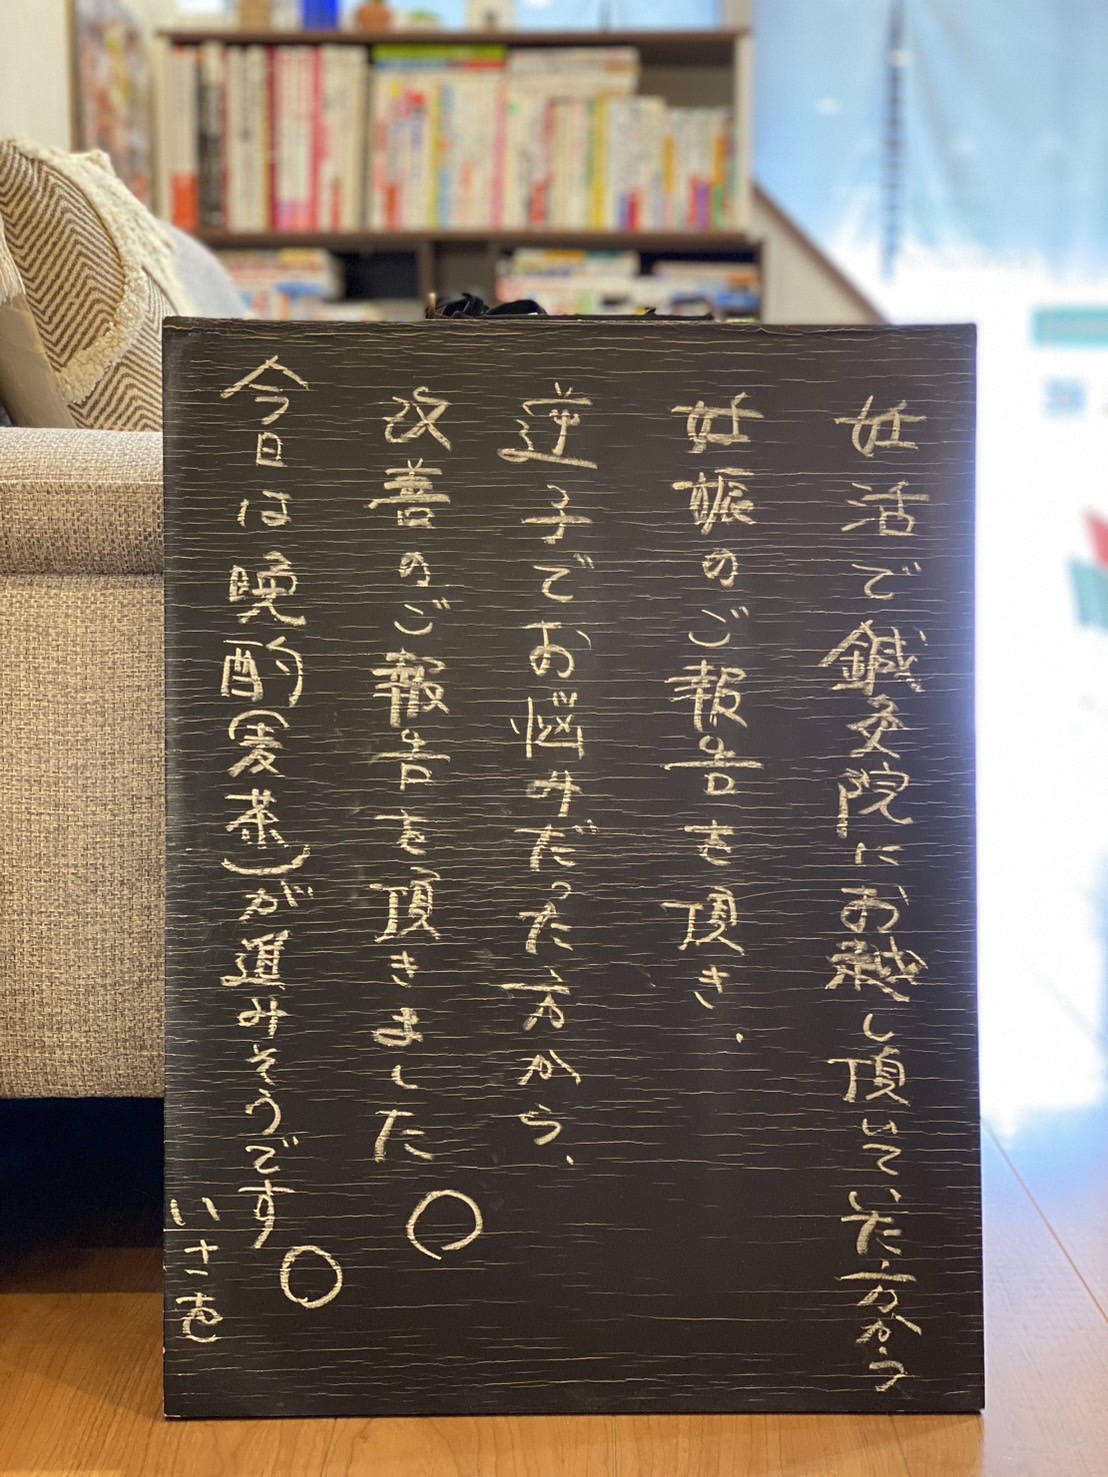 妊活で鍼灸院にお越し頂いていた方から
妊娠のご報告を頂き、
逆子でお悩みだった方から、
改善のご報告を頂きました。
今日は晩酌(麦茶)が進みそうです。